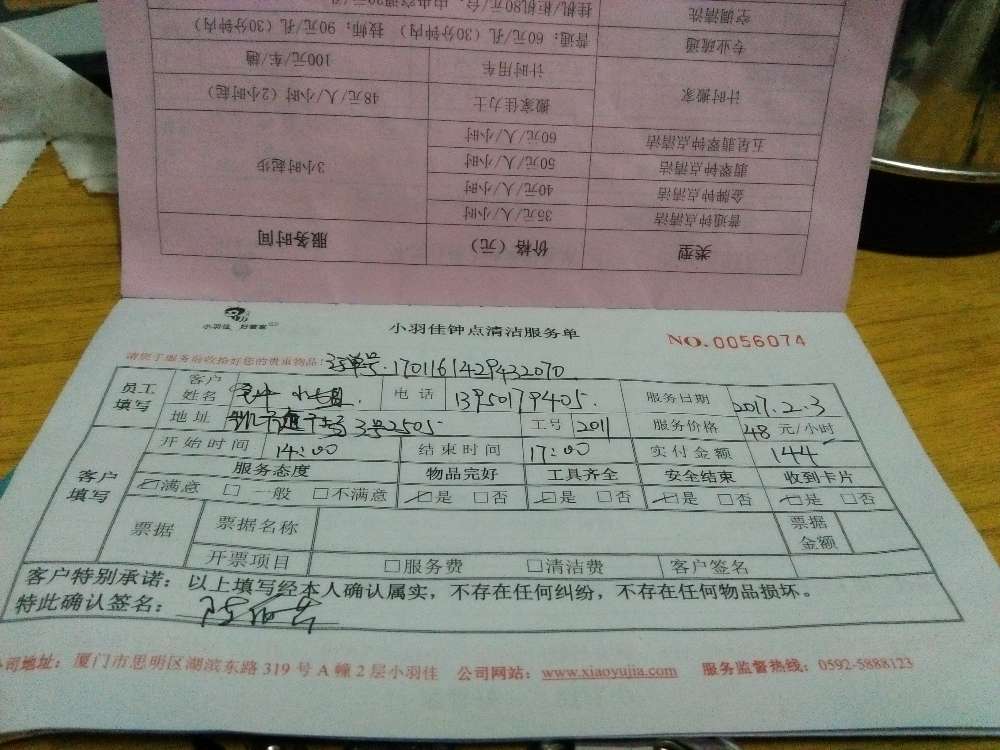 空调清洗 挂机/柜机80元/台
专业疏通 普通：60元/孔（30分钟内） 技师：90元/孔（30分钟内）
计时搬家 计时用车 100元/车/趟
搬家佳力士 48元/人/小时（2小时起）
五星翡翠钟点清洁 60元/人/小时
翡翠钟点清洁 50元/人/小时 3小时起步
金牌钟点清洁 40元/人/小时
普通钟点清洁 35元/人/小时
类型 价格（元） 服务时间
小羽佳 好管家
小羽佳钟点清洁服务单 NO.0056074
请您于服务前收拾好您的贵重物品！订单号.1701161429432070
员工填写 客户姓名 电话 13950179405. 服务日期 2017.2.3
地址 3号2505 工号 2011 服务价格 48 元/小时
客户填写 开始时间 14:00 结束时间 17:00 实付金额 144
服务态度 物品完好 工具齐全 安全结束 收到卡片
☑满意 □一般 □不满意 ☑是 □否 ☑是 □否 ☑是 □否 ☑是 □否
票据 票据名称 票据金额
开票项目 □服务费 □清洁费 客户签名
客户特别承诺：以上填写经本人确认属实，不存在任何纠纷，不存在任何物品损坏。
特此确认签名：
公司地址：厦门市思明区湖滨东路319号A幢2层小羽佳 公司网站：www.xiaoyujia.com 服务监督热线：0592-5888123